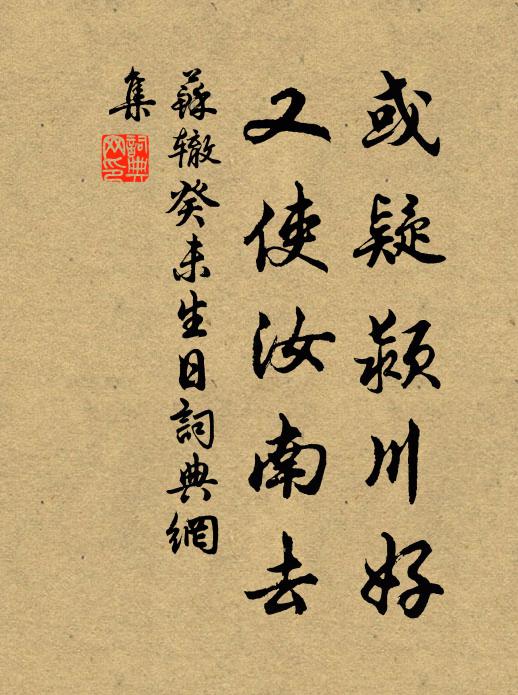 或疑颍川好
又使汝南去
蘇辙癸未生日詞典網
集
詞典
网印